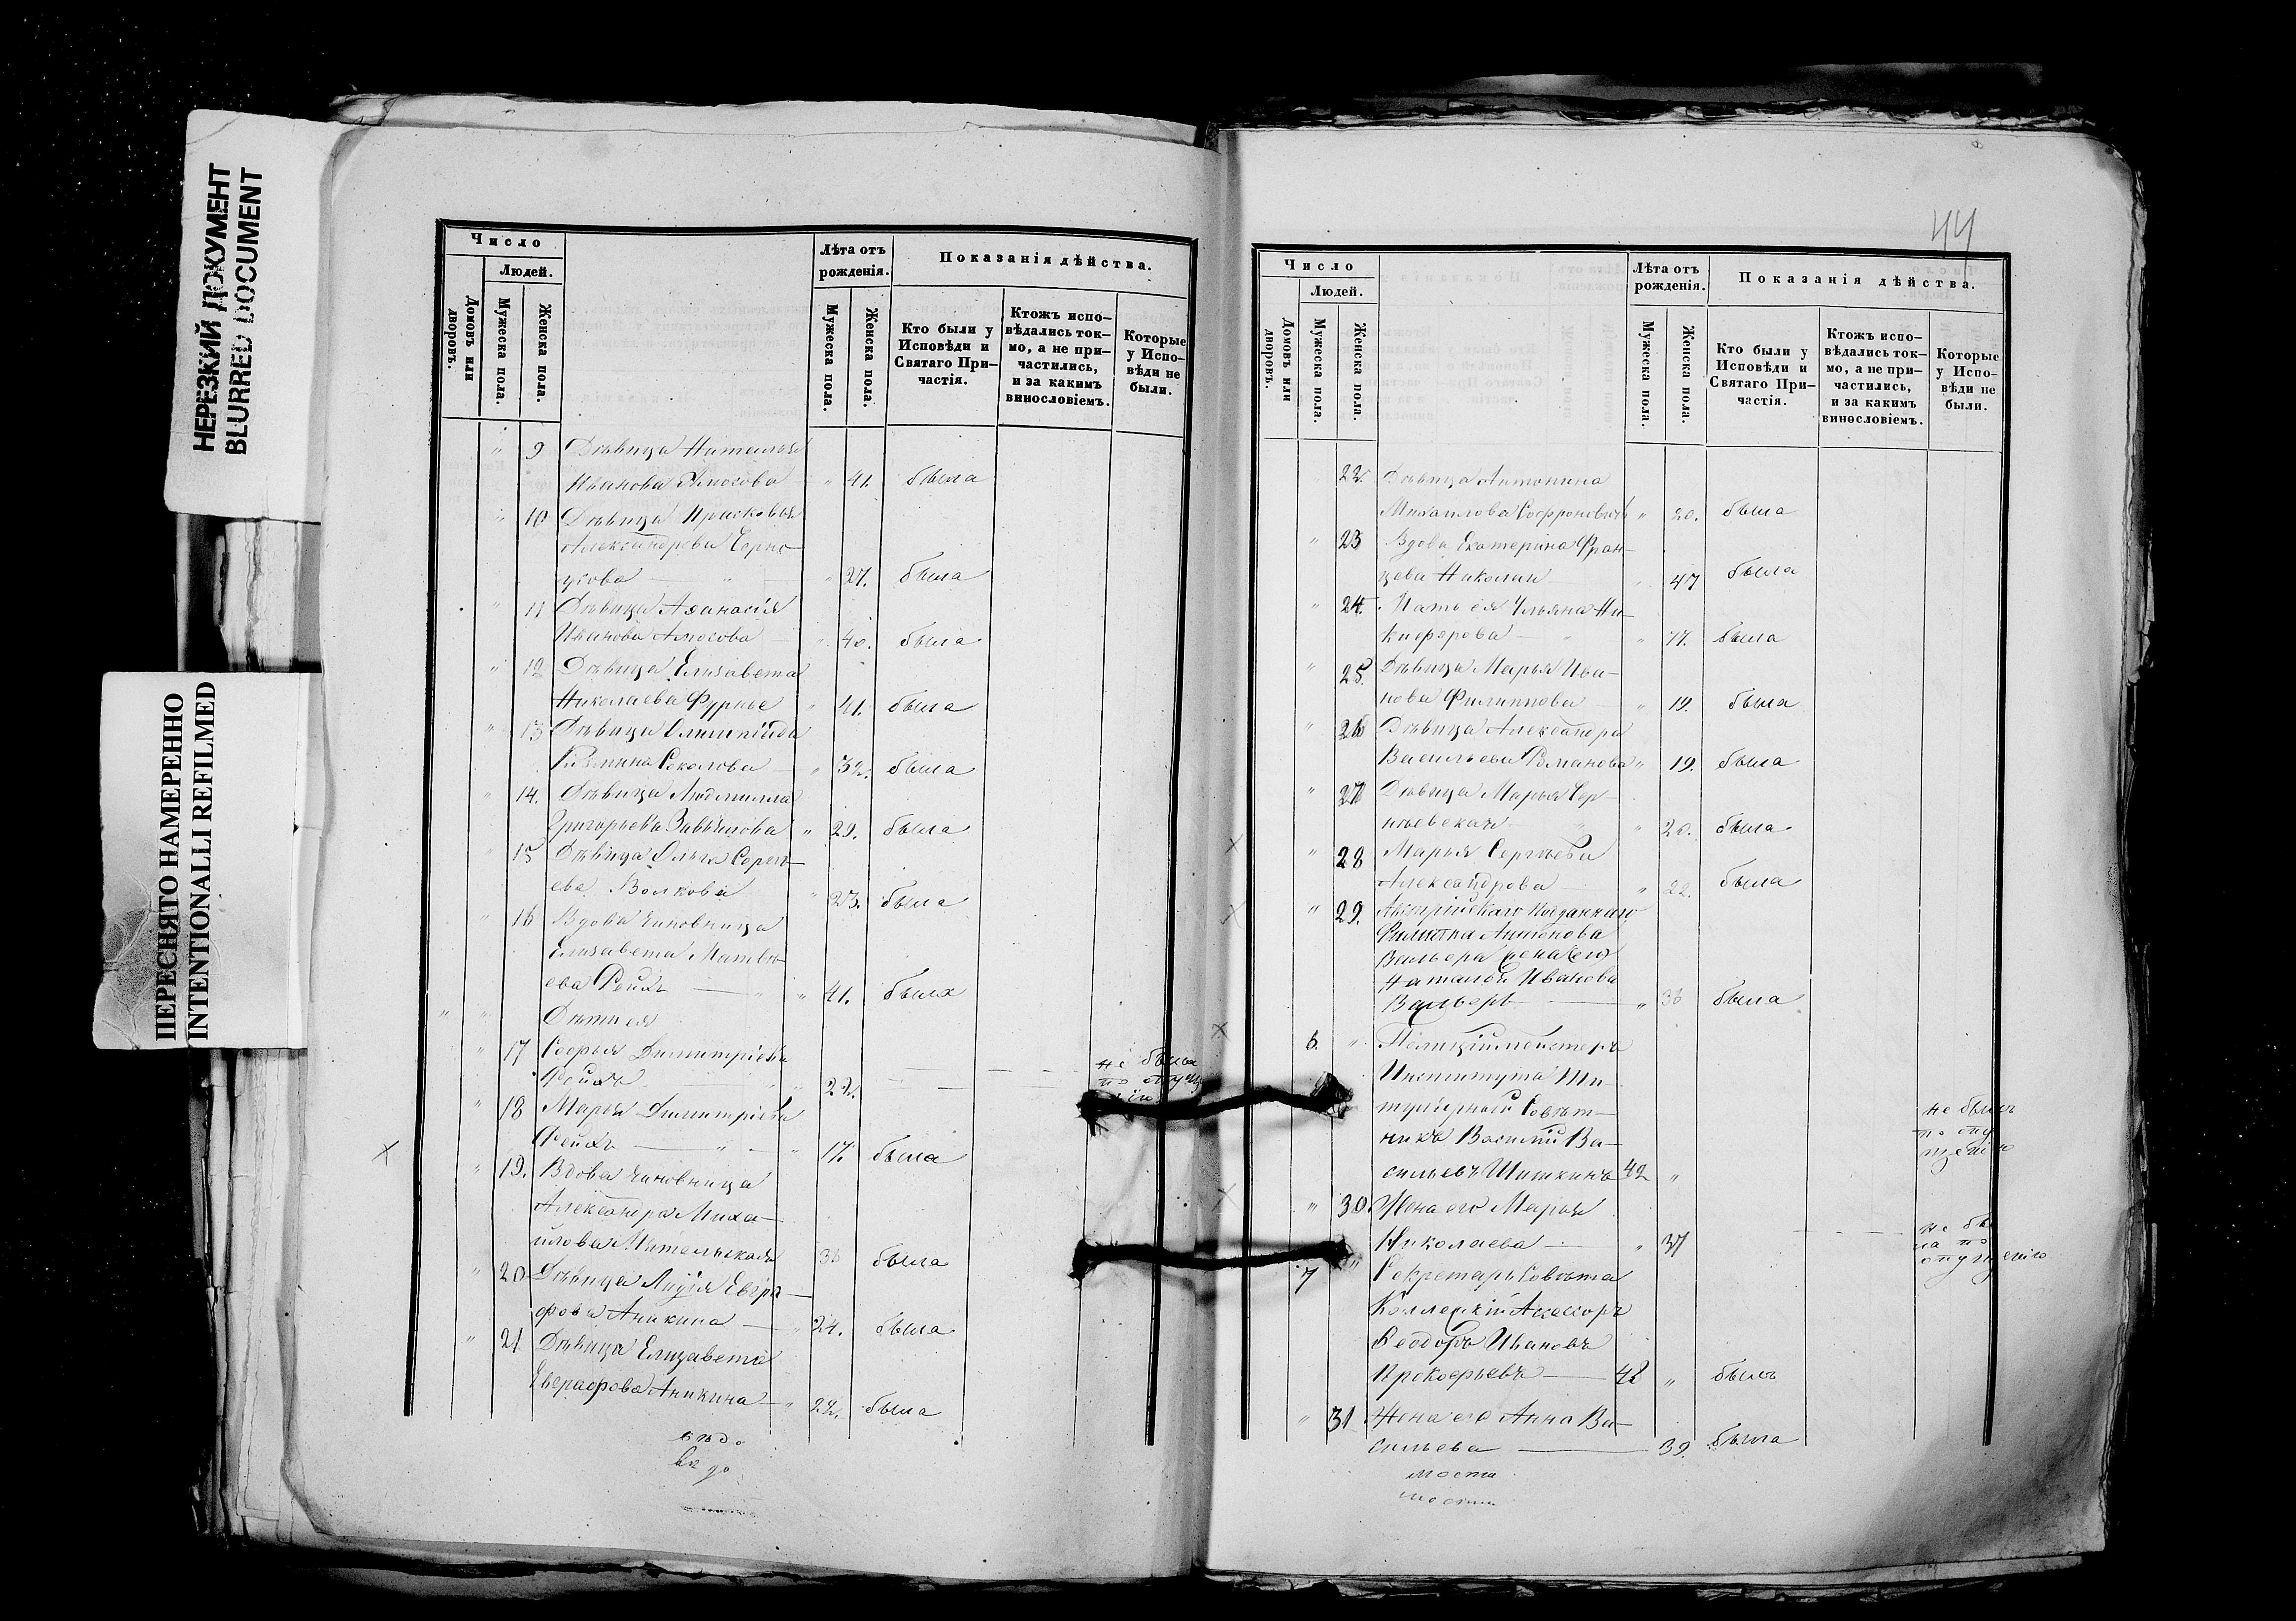 НЕРЕЗКИЙ ДОКУМЕНТ
BLURRED DOCUMENT
ПЕРЕСНЯТО НАМЕРЕННО
INTENTIONALLI REFILMED
Число
Людей.
Домовъ или дворовъ.
Мужеска пола.
Женска пола.
Лѣта отъ рожденія.
Мужеска пола.
Женска пола.
Показанія дѣйства.
Кто были у Исповѣди и Святаго При-
частія.
Ктожъ испо-
вѣдались ток-
мо, а не при-
частились,
и за какимъ
винословіемъ.
Которые
у Испо-
вѣди не
были.
" 9 Дѣвица Наталья
Иванова Амосова " 41. была
" 10 Дѣвица Прасковья
Александрова Черно-
усова " 27. была
" 11 Дѣвица Аѳанасія
Иванова Амосова " 40. была
" 12 Дѣвица Елисавета
Николаева Фурнье " 41. была
" 13 Дѣвица Олимпіада
Козмина Соколова " 32. была
" 14. Дѣвица Людмилла
Григорьева " 29. была
" 15 Дѣвица Ольга Сергѣ-
ева Волкова " 23. была
" 16 Вдова Чиновница
Елисавета Матвѣ-
ева Рейхъ " 41. была
" " Дѣти ея
" 17 Софья Димитріева
Рейхъ " 22. не была
по опущ
" 18 Марья Димитріева
Рейхъ " 17. была
" 19. Вдова чиновница
Александра Миха-
илова 36 была
" 20 Дѣвица Лидія Евгра-
фова Аникина " 24. была
" 21 Дѣвица Елизавета
Евграфова Аникина " 22. была
44
Число
Людей.
Домовъ или дворовъ.
Мужеска пола.
Женска пола.
Лѣта отъ рожденія.
Мужеска пола.
Женска пола.
Показанія дѣйства.
Кто были у
Исповѣди и
Святаго При-
частія.
Ктожъ испо-
вѣдались ток-
мо, а не при-
частились,
и за какимъ
винословіемъ.
Которые
у Испо-
вѣди не
были.
22. Дѣвица Антонина
Михаилова Софроновичъ " 20. была
" 23 Вдова Екатерина Фран-
цева Николаи " 47 была
" 24. Мать ея Ульяна Ни-
кифорова " 77. была
" 25. Дѣвица Марья Ива-
нова Филиппова " 19. была
" 26 Дѣвица Александра
Васильева Романова " 19. была
" 27 Дѣвица Марья Сер-
" 20. была
" 28 Марья Сергѣева
Александрова " 22. была
" 29. Австрійскаго подданнаго
Антонова
жена его
Наталья Иванова
" 36 была
6. " Полиціймейстеръ
Института Ти-
тулярный Совѣт-
никъ Василій Ва-
сильевъ Шишкинъ 42 "
не былъ
по опу
щенію
" 30 Жена его Марья
Николаева " 37
не бы
ла по
опущенію
7 " Секретарь Совѣта
Коллежскій Ассесоръ
Ѳеодоръ Ивановъ
Прокофьевъ 48 " былъ
" 31 Жена его Анна Ва-
сильева 39. была
моста